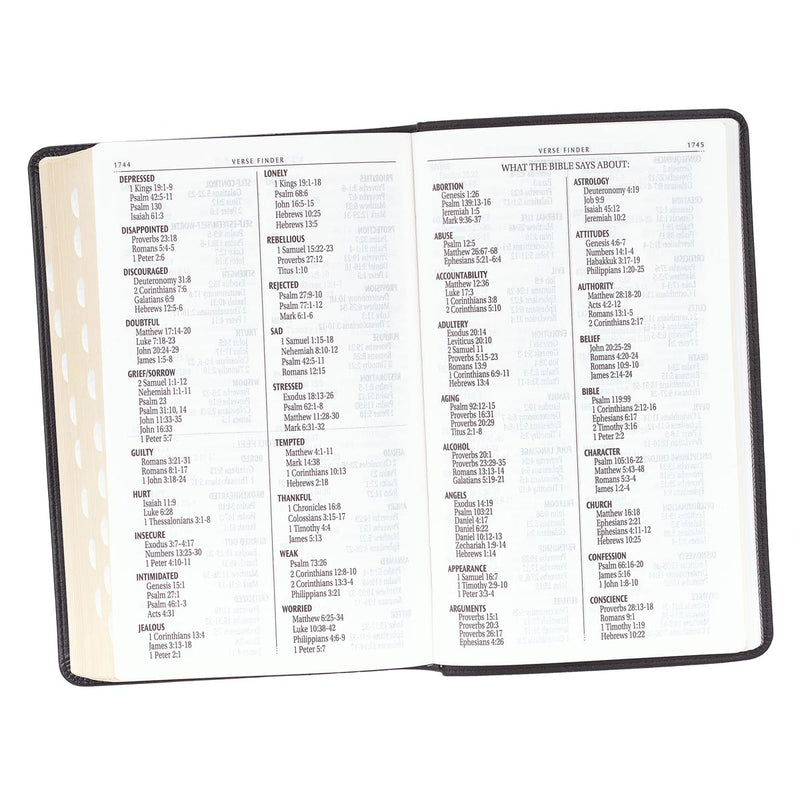 1744
VERSE FINDER
DEPRESSED
1 Kings 19:1-9
Psalm 42:5-11
Psalm 130
Isaiah 61:3
DISAPPOINTED
Proverbs 23:18
Romans 5:4-5
1 Peter 2:6
DISCOURAGED
Deuteronomy 31:8
2 Corinthians 7:6
Galatians 6:9
Hebrews 12:5-6
DOUBTFUL
Matthew 17:14-20
Luke 7:18-23
John 20:24-29
James 1:5-8
GRIEF/SORROW
2 Samuel 1:1-12
Nehemiah 1:1-11
Psalm 23
Psalm 31:10, 14
John 11:33-35
John 16:33
1 Peter 5:7
GUILTY
Romans 3:21-31
Romans 8:1-17
1 John 3:18-24
HURT
Isaiah 11:9
Luke 6:28
1 Thessalonians 3:1-8
INSECURE
Exodus 3:7-4:17
Numbers 13:25-30
1 Peter 4:10-11
INTIMIDATED
Genesis 15:1
Psalm 27:1
Psalm 46:1-3
Acts 4:31
JEALOUS
1 Corinthians 13:4
James 3:13-18
1 Peter 2:1
LONELY
1 Kings 19:1-18
Psalm 68:6
John 16:5-15
Hebrews 10:25
Hebrews 13:5
REBELLIOUS
1 Samuel 15:22-23
Proverbs 27:12
Titus 1:10
REJECTED
Psalm 27:9-10
Psalm 77:1-12
Mark 6:1-6
SAD
1 Samuel 1:15-18
Nehemiah 8:10-12
Psalm 42:5-11
Romans 12:15
STRESSED
Exodus 18:13-26
Psalm 62:1-8
Matthew 11:28-30
Mark 6:31-32
TEMPTED
Matthew 4:1-11
Mark 14:38
1 Corinthians 10:13
Hebrews 2:18
THANKFUL
1 Chronicles 16:8
Colossians 3:15-17
1 Timothy 4:4
James 5:13
WEAK
Psalm 73:26
2 Corinthians 12:8-10
2 Corinthians 13:3-4
Philippians 3:21
WORRIED
Matthew 6:25-34
Luke 10:38-42
Philippians 4:6-9
1 Peter 5:7
VERSE FINDER
1745
WHAT THE BIBLE SAYS ABOUT:
ABORTION
Genesis 1:26
Psalm 139:13-16
Jeremiah 1:5
Mark 9:36-37
ABUSE
Psalm 12:5
Matthew 26:67-68
Ephesians 5:21-6:4
ACCOUNTABILITY
Matthew 12:36
Luke 17:3
1 Corinthians 3:8
2 Corinthians 5:10
ADULTERY
Exodus 20:14
Leviticus 20:10
2 Samuel 11
Proverbs 5:15-23
Romans 13:9
1 Corinthians 6:9-11
Hebrews 13:4
AGING
Psalm 92:12-15
Proverbs 16:31
Proverbs 20:29
Titus 2:1-8
ALCOHOL
Proverbs 20:1
Proverbs 23:29-35
Romans 13:13-14
Galatians 5:19-21
ANGELS
Exodus 14:19
Psalm 103:21
Daniel 4:17
Daniel 6:22
Daniel 10:12-13
Zechariah 1:9-14
Hebrews 1:14
APPEARANCE
1 Samuel 16:7
1 Timothy 2:9-10
1 Peter 3:3-4
ARGUMENTS
Proverbs 15:1
Proverbs 20:3
Proverbs 26:17
Ephesians 4:26
ASTROLOGY
Deuteronomy 4:19
Job 9:9
Isaiah 45:12
Jeremiah 10:2
ATTITUDES
Genesis 4:6-7
Numbers 14:1-4
Habakkuk 3:17-19
Philippians 1:20-25
AUTHORITY
Matthew 28:18-20
Acts 4:2-12
Romans 13:1-5
2 Corinthians 2:17
BELIEF
John 20:25-29
Romans 4:20-24
Romans 10:9-10
James 2:14-24
BIBLE
Psalm 119:99
1 Corinthians 2:12-16
Ephesians 6:17
2 Timothy 3:16
1 Peter 2:2
CHARACTER
Psalm 105:16-22
Matthew 5:43-48
Romans 5:3-4
James 1:2-4
CHURCH
Matthew 16:18
Ephesians 2:21
Ephesians 4:11-12
Hebrews 10:25
CONFESSION
Psalm 66:16-20
James 5:16
1 John 1:8-10
CONSCIENCE
Proverbs 28:13-18
Romans 9:1
1 Timothy 1:19
Hebrews 10:22